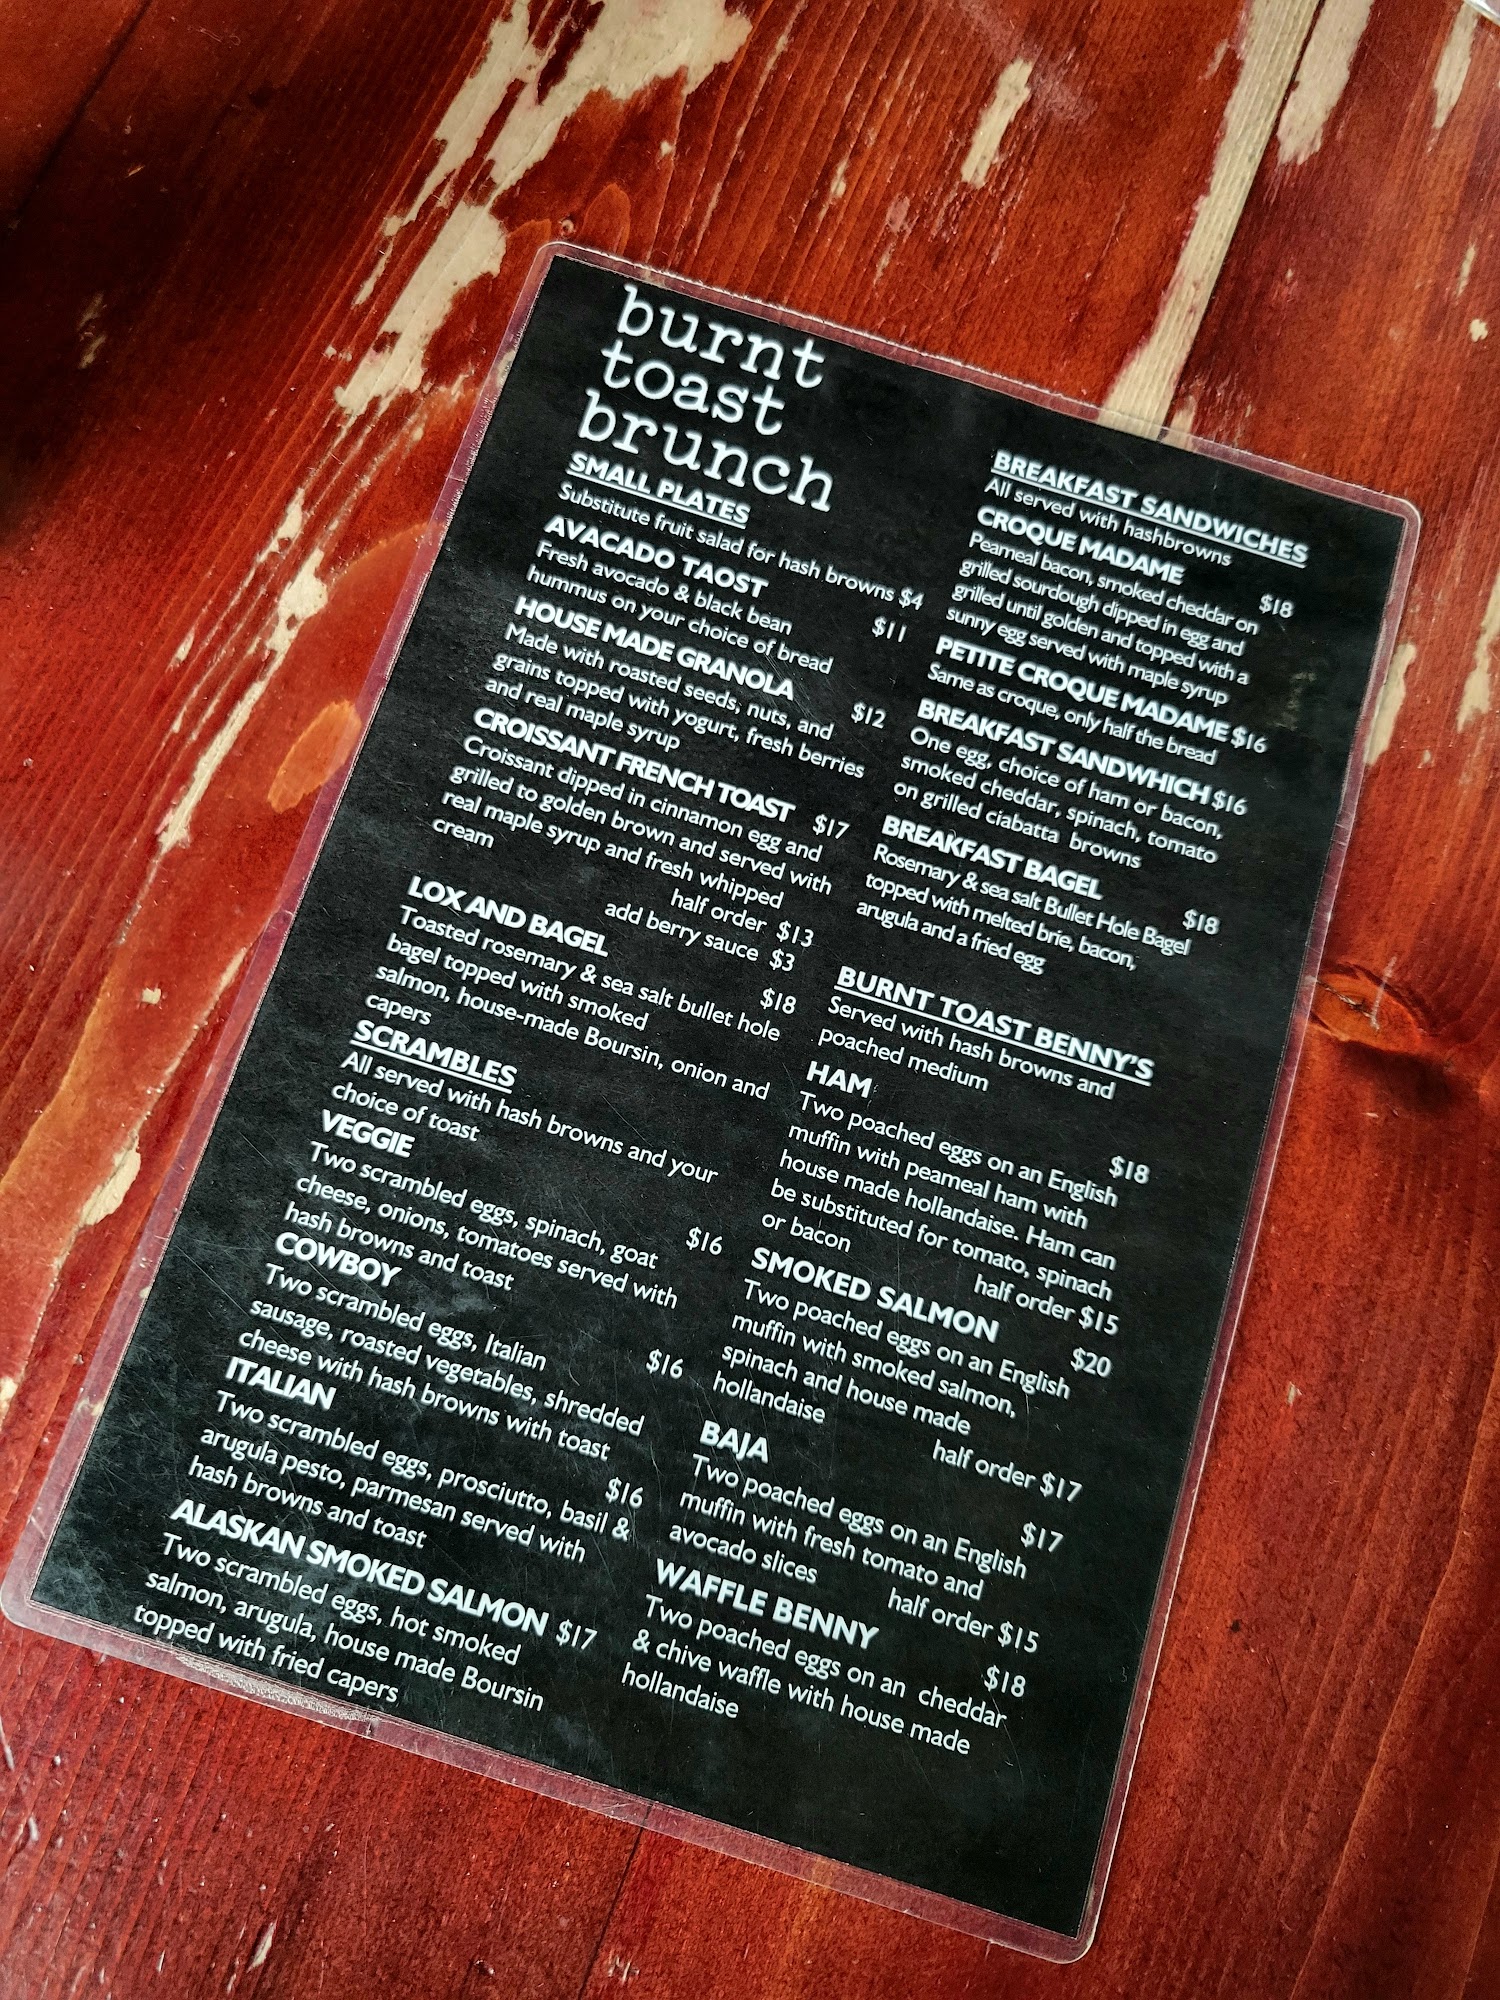 burnt
toast
brunch
SMALL PLATES
Substitute fruit salad for hash browns $4
AVACADO TAOST $11
Fresh avocado & black bean
hummus on your choice of bread
HOUSE MADE GRANOLA $12
Made with roasted seeds, nuts, and
grains topped with yogurt, fresh berries
and real maple syrup
CROISSANT FRENCH TOAST $17
Croissant dipped in cinnamon egg and
grilled to golden brown and served with
real maple syrup and fresh whipped
cream
half order $13
add berry sauce $3
LOX AND BAGEL $18
Toasted rosemary & sea salt bullet hole
bagel topped with smoked
salmon, house-made Boursin, onion and
capers
SCRAMBLES
All served with hash browns and your
choice of toast
VEGGIE $16
Two scrambled eggs, spinach, goat
cheese, onions, tomatoes served with
hash browns and toast
COWBOY $16
Two scrambled eggs, Italian
sausage, roasted vegetables, shredded
cheese with hash browns with toast
ITALIAN $16
Two scrambled eggs, prosciutto, basil &
arugula pesto, parmesan served with
hash browns and toast
ALASKAN SMOKED SALMON $17
Two scrambled eggs, hot smoked
salmon, arugula, house made Boursin
topped with fried capers
BREAKFAST SANDWICHES
All served with hashbrowns
CROQUE MADAME $18
Peameal bacon, smoked cheddar on
grilled sourdough dipped in egg and
grilled until golden and topped with a
sunny egg served with maple syrup
PETITE CROQUE MADAME $16
Same as croque, only half the bread
BREAKFAST SANDWHICH $16
One egg, choice of ham or bacon,
smoked cheddar, spinach, tomato
on grilled ciabatta browns
BREAKFAST BAGEL $18
Rosemary & sea salt Bullet Hole Bagel
topped with melted brie, bacon,
arugula and a fried egg
BURNT TOAST BENNY'S
Served with hash browns and
poached medium
HAM $18
Two poached eggs on an English
muffin with peameal ham with
house made hollandaise. Ham can
be substituted for tomato, spinach
or bacon
half order $15
SMOKED SALMON $20
Two poached eggs on an English
muffin with smoked salmon,
spinach and house made
hollandaise
half order $17
BAJA $17
Two poached eggs on an English
muffin with fresh tomato and
avocado slices
half order $15
WAFFLE BENNY $18
Two poached eggs on an cheddar
& chive waffle with house made
hollandaise